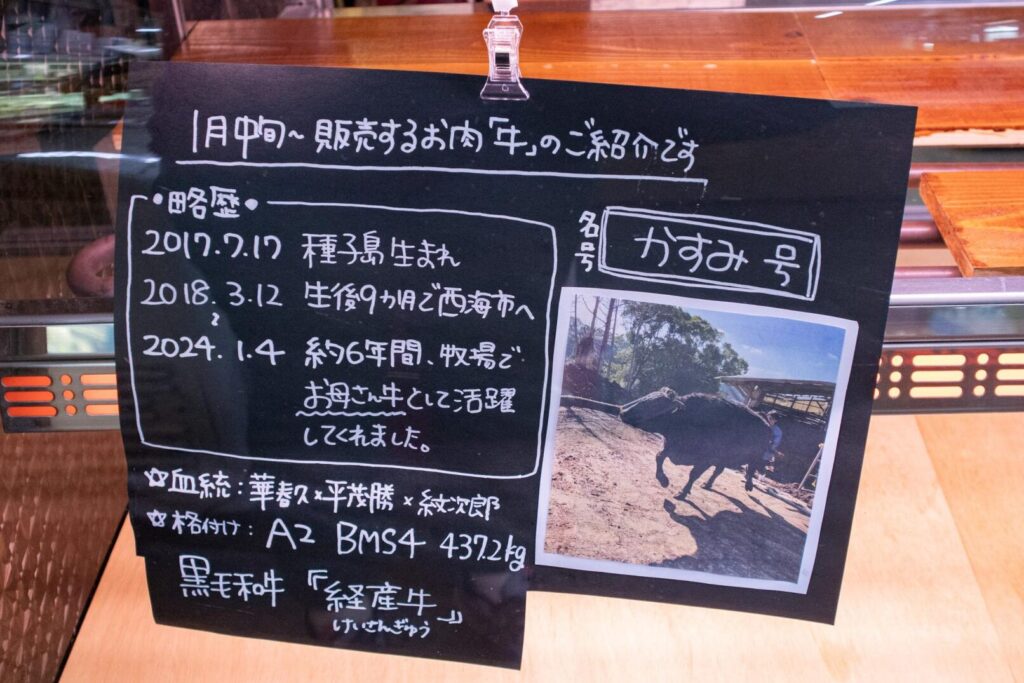 1月中旬~販売するお肉「牛」のご紹介です
・略歴・
2017.7.17 種子島生まれ
2018.3.12 生後9か月で西海市へ
~
2024.1.4 約6年間、牧場で
お母さん牛として活躍
してくれました。
☆血統:華春久×平茂勝×紋次郎
☆格付け: A2 BMS4 437.2kg
黒毛和牛 『経産牛』
けいさんぎゅう
名号
かすみ号